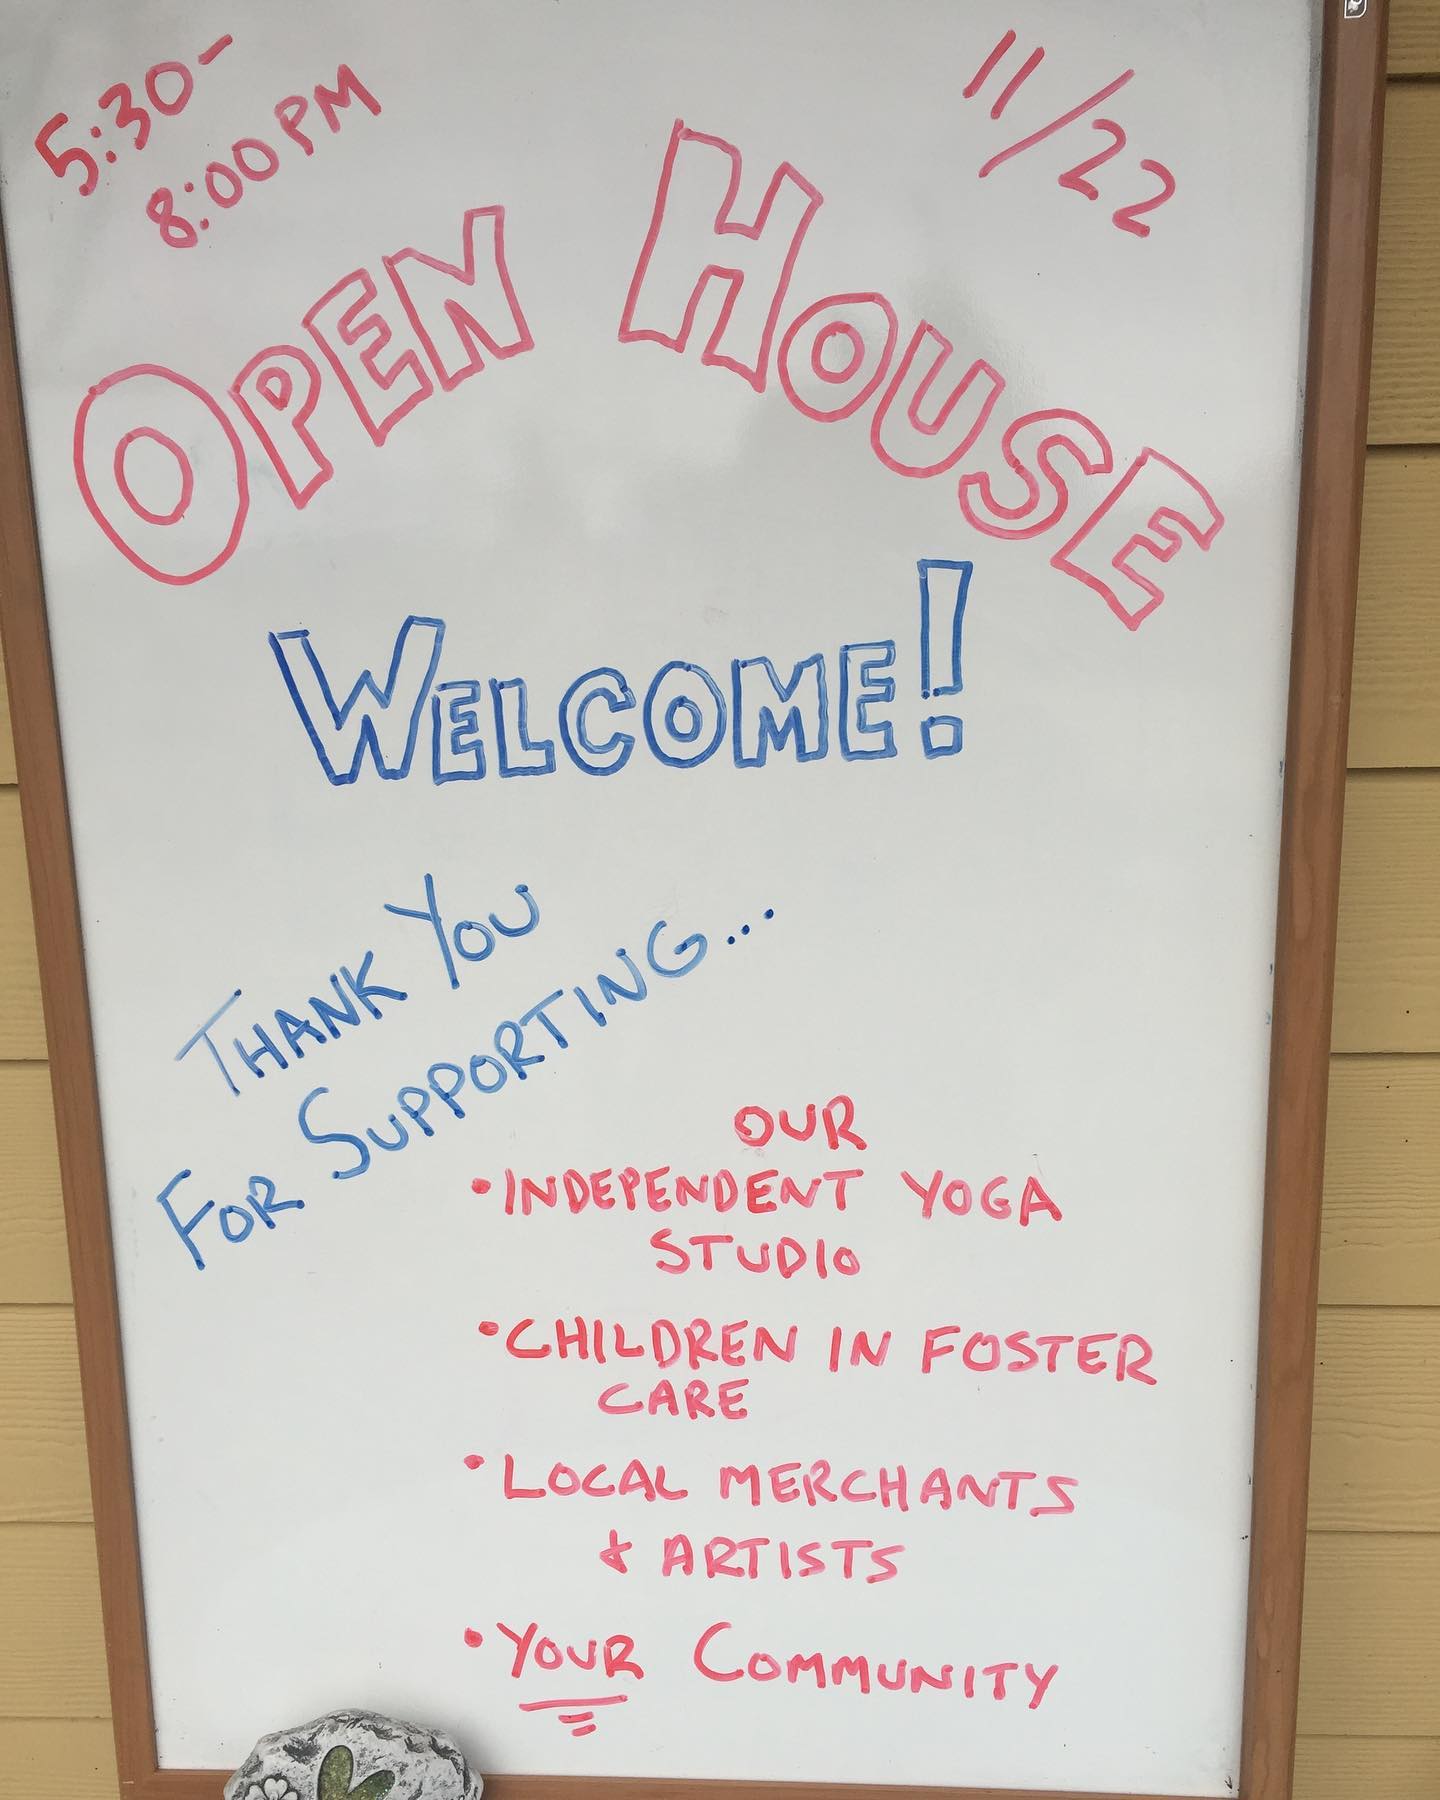 5:30-
8:00 PM
11/22
OPEN HOUSE
WELCOME!
THANK YOU
FOR SUPPORTING...
OUR
• INDEPENDENT YOGA
STUDIO
• CHILDREN IN FOSTER
CARE
• LOCAL MERCHANTS
& ARTISTS
• YOUR COMMUNITY